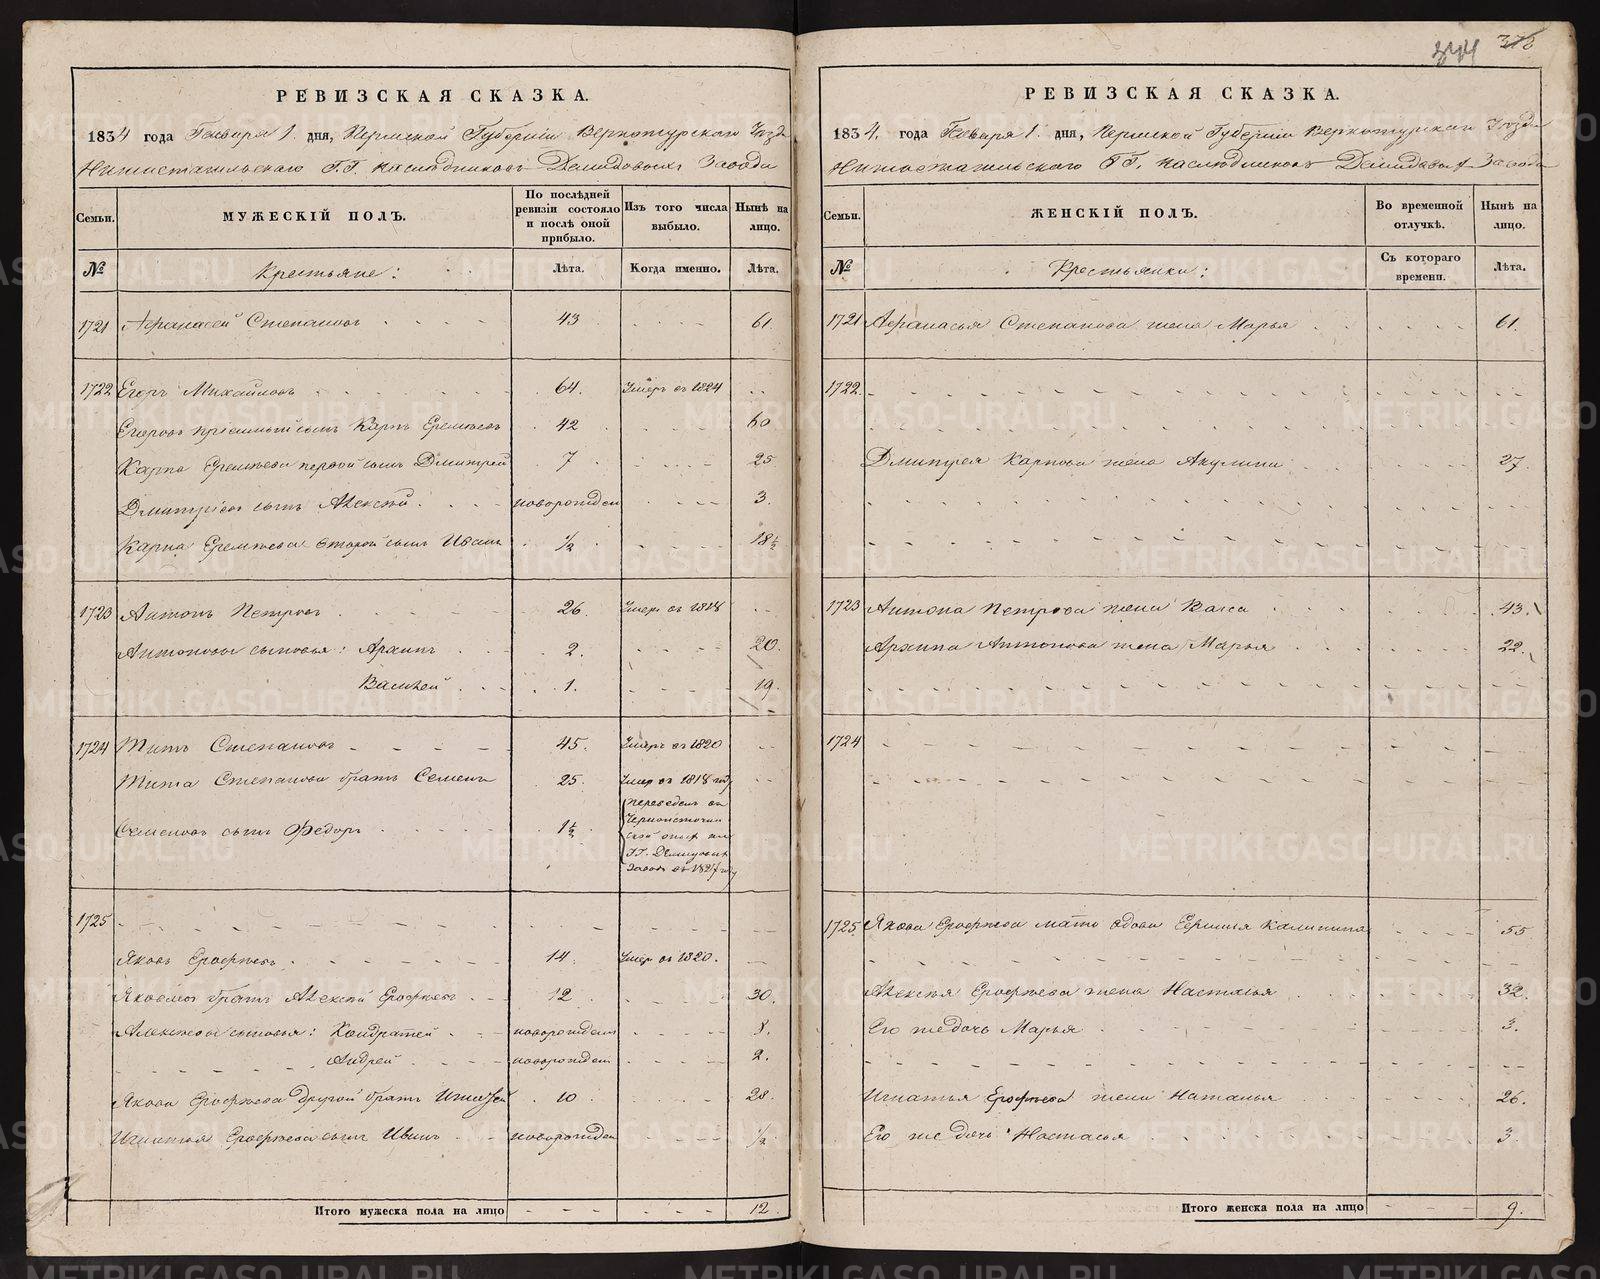 РЕВИЗСКАЯ СКАЗКА.
1834 года Генваря 1. дня, Пермской Губерніи Верхотурскаго Уѣзда
Нижнетагильскаго Г.Г. наслѣдниковъ Демидовыхъ Завода
Семьи. МУЖЕСКІЙ ПОЛЪ. По послѣдней ревизіи состояло и послѣ оной прибыло. Изъ того числа выбыло. Нынѣ на лицо.
№ Крестьяне: Лѣта. Когда именно. Лѣта.
1721 Афанасей Степановъ 43 61.
1722 Егоръ Михайловъ 64. Умеръ въ 1824
Егоровъ пріемный сынъ Карпъ Еремѣевъ 42 60
Карпа Еремѣева первой сынъ Дмитрей 7 25
Дмитріевъ сынъ Алексѣй новорожден 3.
Карпа Еремѣева второй сынъ Иванъ ½ 18½
1723 Антонъ Петровъ 26. Умеръ въ 1818
Антоновы сыновья: Архипъ 2. 20.
Василей 1. 19.
1724 Титъ Степановъ 45. Умеръ въ 1820
Тита Степанова братъ Семенъ 25. Умеръ въ 1818 году
Семеновъ сынъ Федоръ 1½ переведенъ въ
Черноисточин
ской
Г.Г. Демидовыхъ
заводъ въ 1827 году
1725
Яковъ Ерофѣевъ 14. Умеръ въ 1820.
Яковлевъ братъ Алексѣй Ерофѣевъ 12 30.
Алексѣевы сыновья: Кондратей новорожден 8.
Андрей новорожден 2.
Якова Ерофѣева другой братъ Игнатей 10 28.
Игнатья Ерофѣева сынъ Иванъ новорожден ½
Итого мужеска пола на лицо 12.
344 378
РЕВИЗСКАЯ СКАЗКА.
1834. года Генваря 1. дня, Пермской Губерніи Верхотурскаго Уѣзда
Нижнетагильскаго Г.Г. наслѣдниковъ Демидовыхъ Завода
Семьи. ЖЕНСКІЙ ПОЛЪ. Во временной отлучкѣ. Нынѣ на лицо.
№ Крестьянки: Съ котораго времени. Лѣта.
1721 Афанасья Степанова жена Марья 61.
1722.
Дмитрея Карпова жена Акулина 27.
1723 Антона Петрова жена Васса 43.
Архипа Антонова жена Марья 22.
1724
1725. Якова Ерофѣева мать вдова Ефимья Калинина 55
Алексѣя Ерофѣева жена Настасья 32.
Его же дочь Марья 3.
Игнатья Ерофѣева жена Наталья 26.
Его же дочь Настасья 3.
Итого женска пола на лицо 9.
METRIKI.GASO-URAL.RU